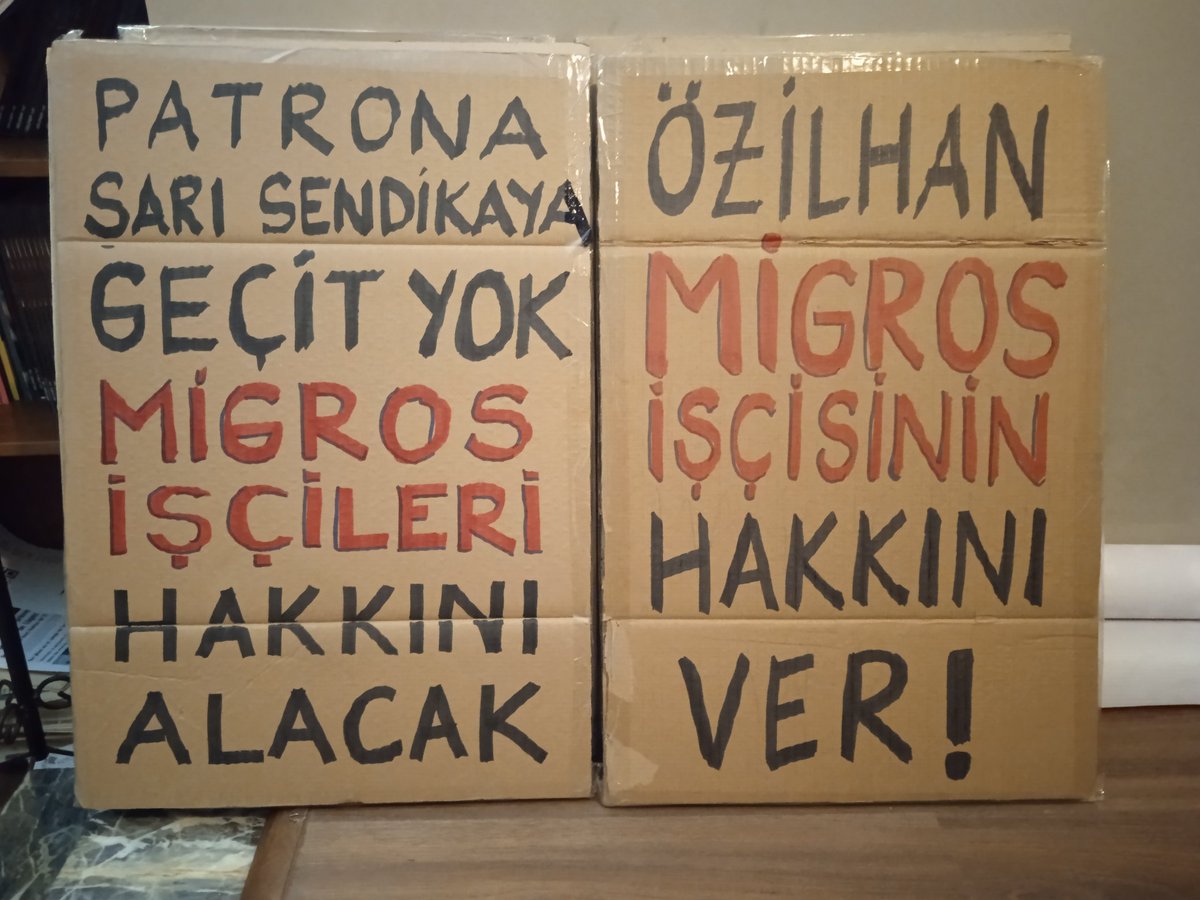 PATRONA
SARI SENDİKAYA
GEÇİT YOK
MİGROS
İŞÇİLERİ
HAKKINI
ALACAK
ÖZİLHAN
MİGROS
İŞÇİSİNİN
HAKKINI
VER!